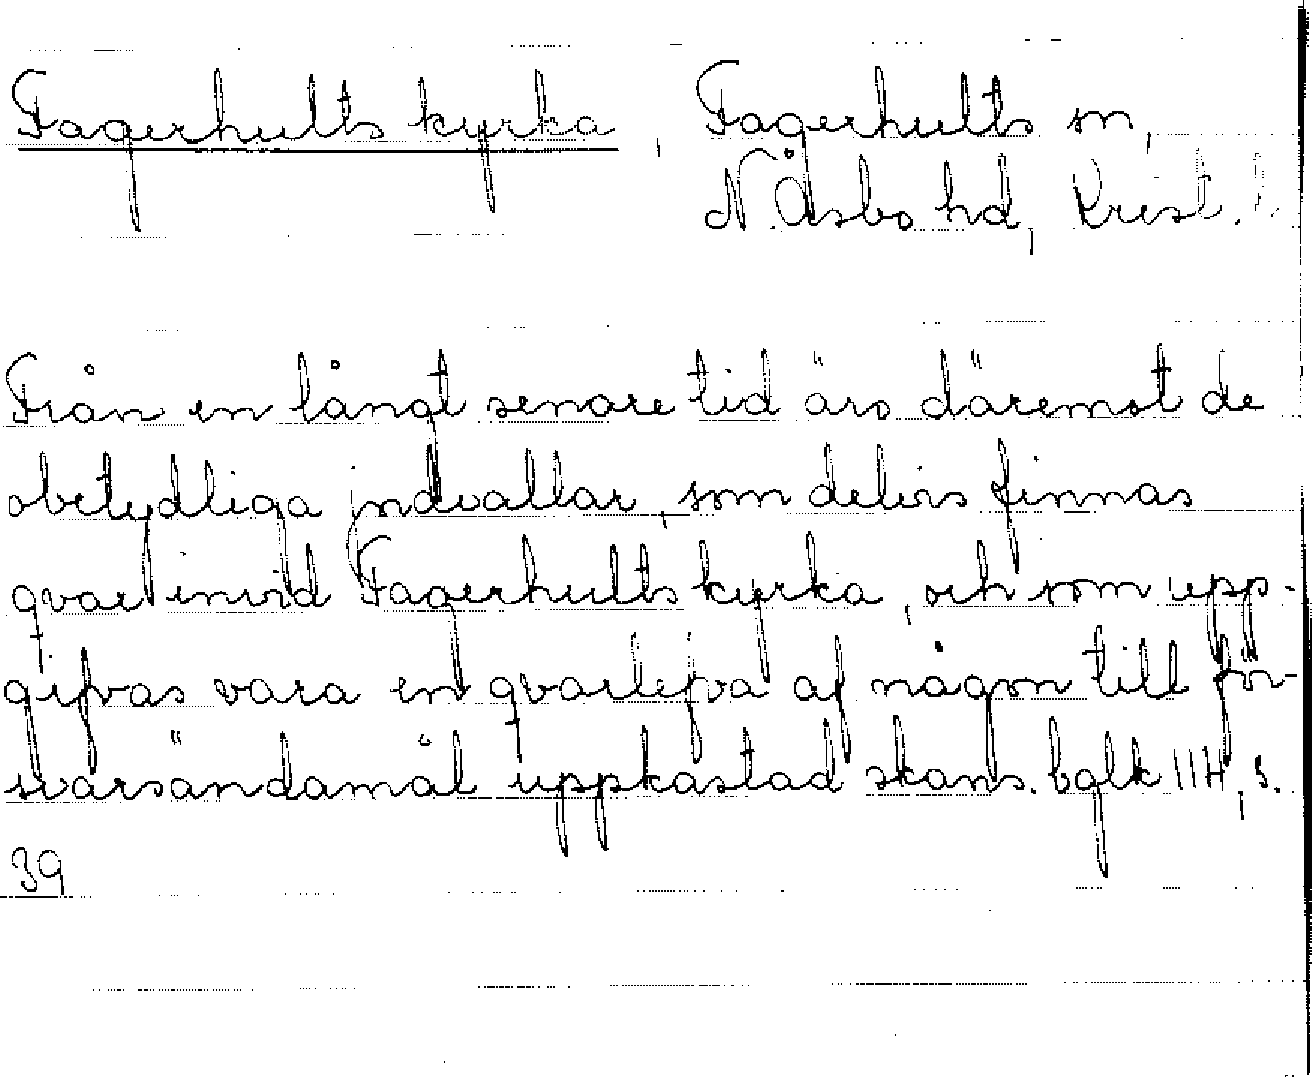 Fagerhults kyrka, Fagerhults sn,
N. Åsbo hd, Krist. l.
Från en långt senare tid äro däremot de
obetydliga jordvallar, som delvis finnas
qvar invid Fagerhults kyrka, och som upp-
gifvas vara en qvarlefva af någon till för-
svarsändamål uppkastad skans. bglk
39